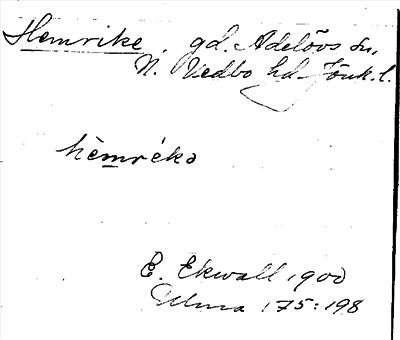 Hemrike, gd. Adelövs sn,
N. Vedbo hd. Jönk. l.
hèmrékə
E. Ekwall 1900
Ulma 175:198